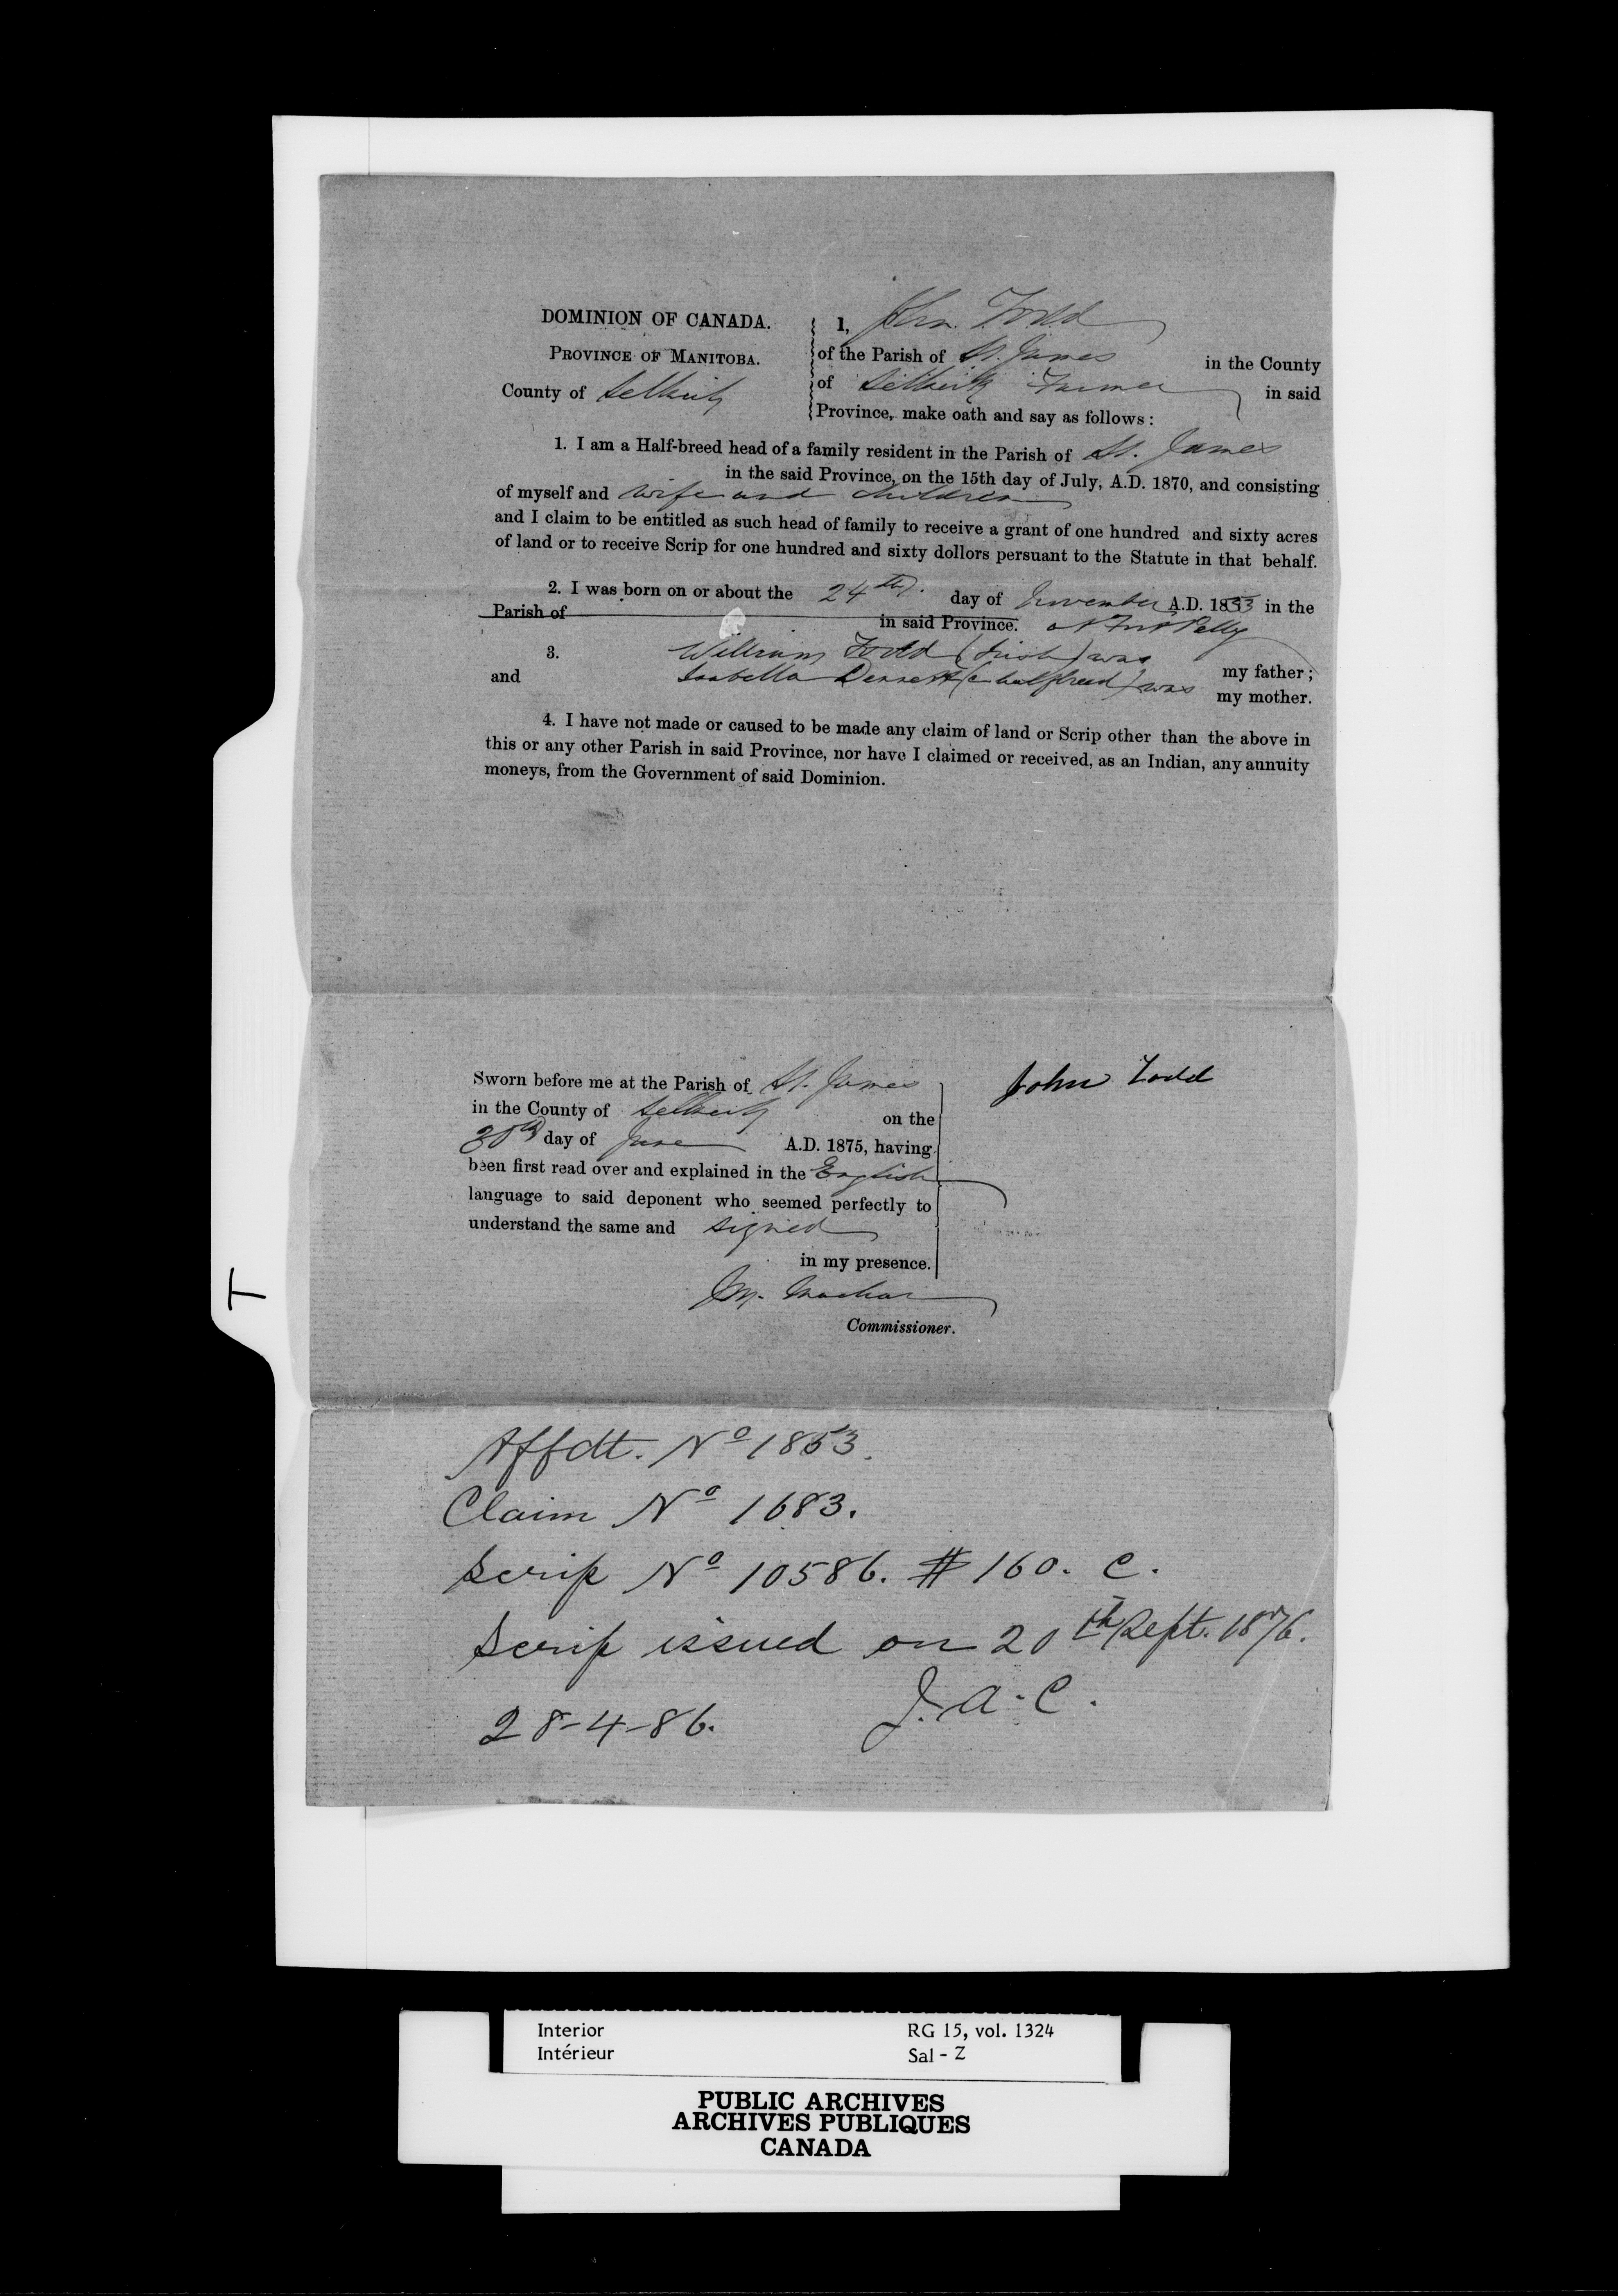 DOMINION OF CANADA.
PROVINCE OF MANITOBA.
County of Selkirk
I, John Todd
of the Parish of St. James in the County
of Selkirk Farmer in said
Province, make oath and say as follows:
1. I am a Half-breed head of a family resident in the Parish of St. James
in the said Province, on the 15th day of July, A.D. 1870, and consisting
of myself and wife and children
and I claim to be entitled as such head of family to receive a grant of one hundred and sixty acres
of land or to receive Scrip for one hundred and sixty dollors persuant to the Statute in that behalf.
2. I was born on or about the 24th day of November A.D. 1853 in the
Parish of in said Province. at Fort Pelly
3. William Todd (Irish) was my father;
and Isabella (a halfbreed) was my mother.
4. I have not made or caused to be made any claim of land or Scrip other than the above in
this or any other Parish in said Province, nor have I claimed or received, as an Indian, any annuity
moneys, from the Government of said Dominion.
Sworn before me at the Parish of St. James
in the County of Selkirk on the
30th day of June A.D. 1875, having
been first read over and explained in the English
language to said deponent who seemed perfectly to
understand the same and signed
in my presence.
John Todd
J.M. Machar
Commissioner.
Affdt. No 1853.
Claim No 1683.
Scrip No 10586. $160. C.
Scrip issued on 20th Sept. 1876.
28-4-86. J. A. C.
T
Interior RG 15, vol. 1324
Intérieur Sal - Z
PUBLIC ARCHIVES
ARCHIVES PUBLIQUES
CANADA